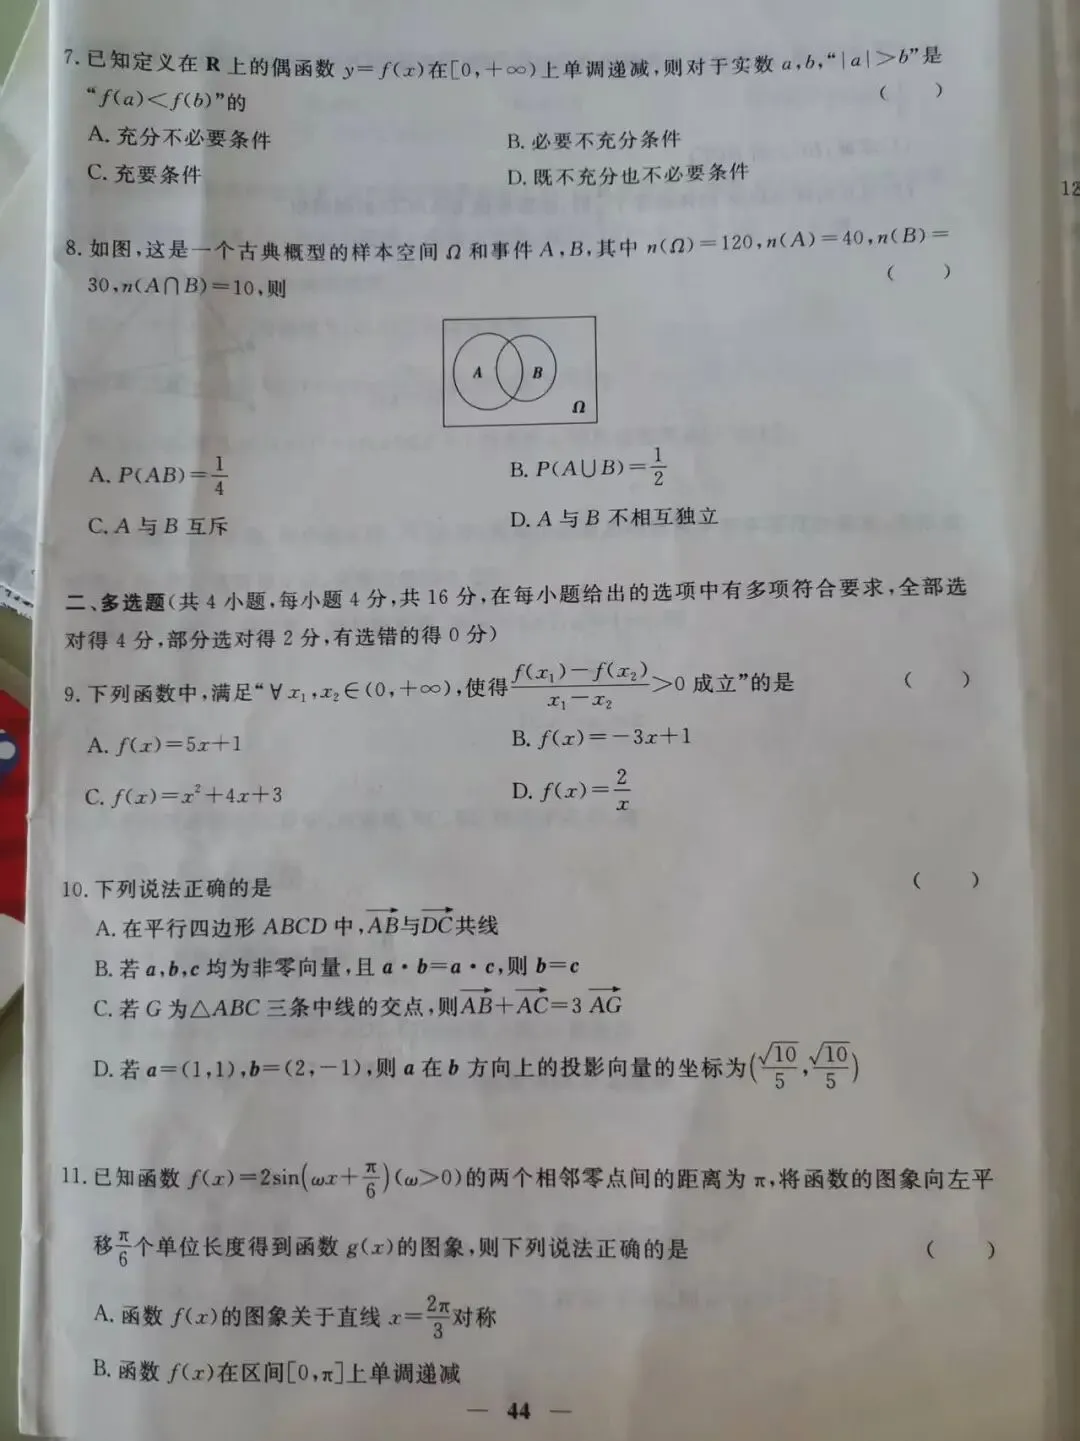 7. 已知定义在 R 上的偶函数 y=f(x)在[0,+∞)上单调递减,则对于实数 a,b,“|a|>b”是
“f(a)<f(b)”的 ( )
A. 充分不必要条件 B. 必要不充分条件
C. 充要条件 D. 既不充分也不必要条件
12
8. 如图,这是一个古典概型的样本空间 Ω 和事件 A,B,其中 n(Ω)=120,n(A)=40,n(B)=
30,n(A∩B)=10,则 ( )
A B
Ω
A. P(AB)=1/4 B. P(A∪B)=1/2
C. A 与 B 互斥 D. A 与 B 不相互独立
二、多选题(共 4 小题,每小题 4 分,共 16 分,在每小题给出的选项中有多项符合要求,全部选
对得 4 分,部分选对得 2 分,有选错的得 0 分)
9. 下列函数中,满足“∀x₁,x₂∈(0,+∞),使得 (f(x₁)-f(x₂))/(x₁-x₂)>0 成立”的是 ( )
A. f(x)=5x+1 B. f(x)=-3x+1
C. f(x)=x²+4x+3 D. f(x)=2/x
10. 下列说法正确的是 ( )
A. 在平行四边形 ABCD 中,→AB与→DC共线
B. 若 a,b,c 均为非零向量,且 a·b=a·c,则 b=c
C. 若 G 为△ABC 三条中线的交点,则→AB+→AC=3 →AG
D. 若 a=(1,1),b=(2,-1),则 a 在 b 方向上的投影向量的坐标为(√10/5,√10/5)
11. 已知函数 f(x)=2sin(ωx+π/6)(ω>0)的两个相邻零点间的距离为 π,将函数的图象向左平
移π/6个单位长度得到函数 g(x)的图象,则下列说法正确的是 ( )
A. 函数 f(x)的图象关于直线 x=2π/3对称
B. 函数 f(x)在区间[0,π]上单调递减
— 44 —